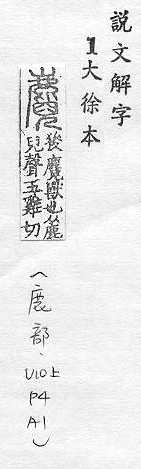 說文解字
1大徐本
麑
狻麑獸也从鹿
兒聲五雞切
(鹿部、V10上
P4
A1)